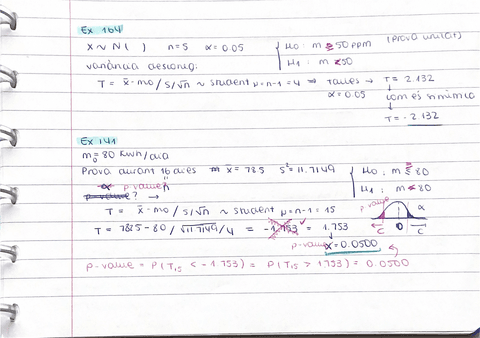 Ex 104
X ~ N( ) n=5 α=0.05 { H0: m ≥ 50 ppm (prova unilat)
variância desconeg: H1: m < 50
T = x̄-m0 / S/√n ~ student μ=n-1=4 ⇒ taules → T= 2.132
α=0.05 com és simètrica
T=-2.132
Ex 141
m0=80 Kwh/dia
Prova duran 16 dies x̄ = 78.5 S²=11.7149 { H0: m ≥ 80
α p-value p-value? → H1: m < 80
T= x̄-m0 / S/√n ~ student μ=n-1=15 p value α
T= 78.5-80 / √11.7149/4 = -1.753 = 1.753 C 0 C
p-value α=0.0500
p-value = P(T15 < -1.753) = P(T15 > 1.753) = 0.0500